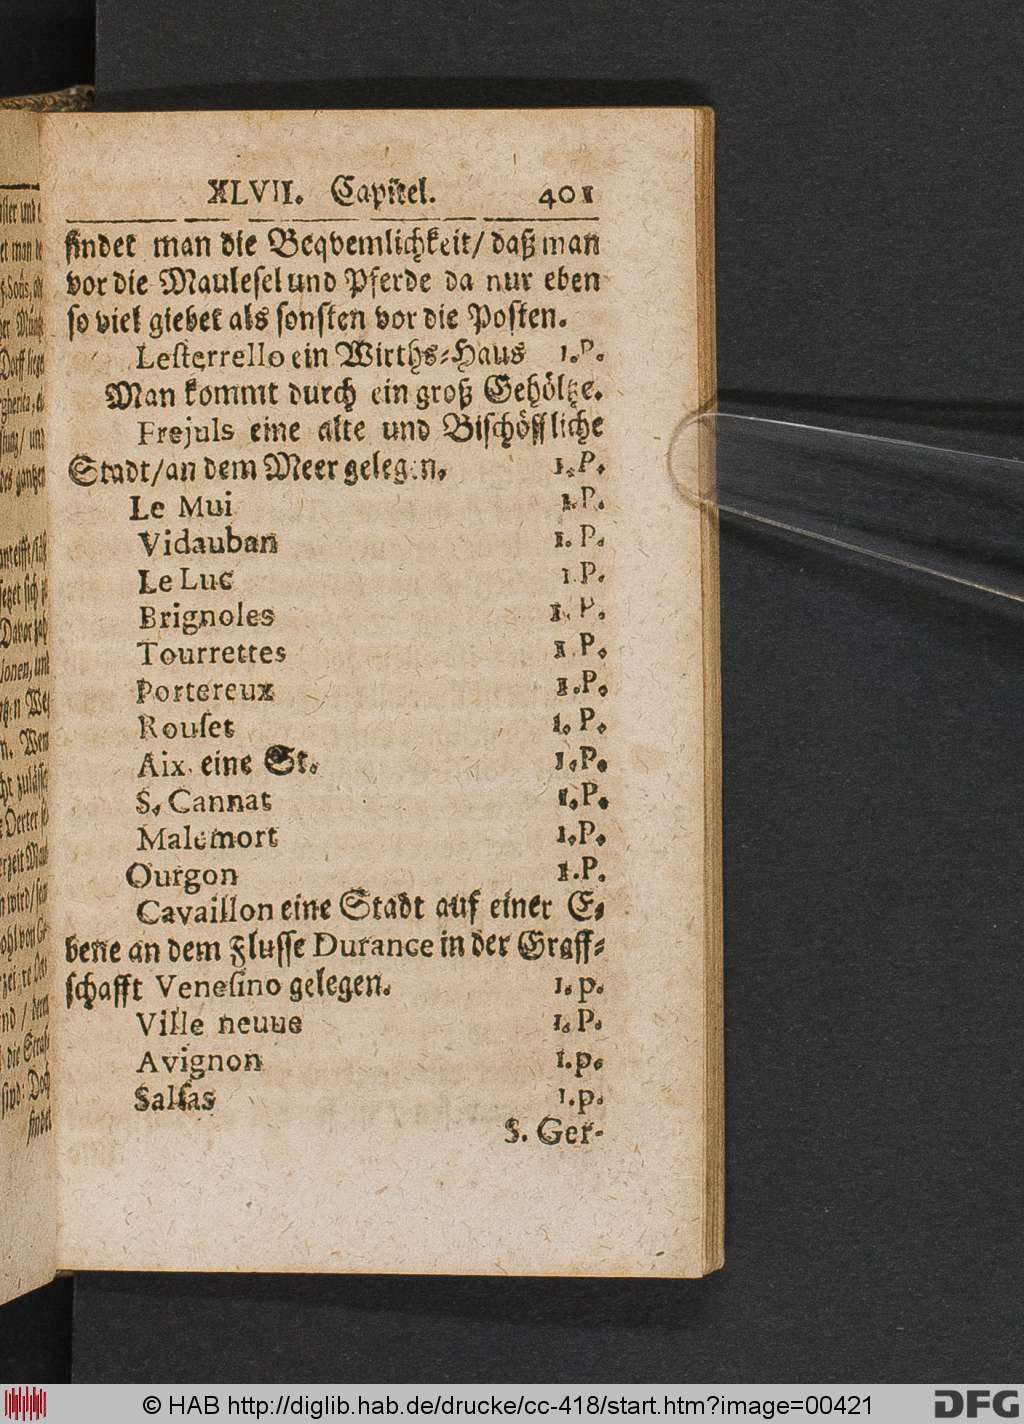 XLVII. Capitel. 401
findet man die Beqvemlichkeit/ daß man
vor die Maulesel und Pferde da nur eben
so viel giebet als sonsten vor die Posten.
Lesterrello ein Wirths-Haus 1.P.
Man kommt durch ein groß Gehöltze.
Frejuls eine alte und Bischöffliche
Stadt/an dem Meer gelegen. 1.P.
Le Mui 1.P.
Vidauban 1.P.
Le Luc 1 P.
Brignoles 1.P.
Tourrettes 1 P.
Portereux 1.P.
Rouset 1.P.
Aix eine St. 1.P.
S. Cannat 1.P.
Malemort 1.P.
Ourgon 1.P.
Cavaillon eine Stadt auf einer E-
bene an dem Flusse Durance in der Graff-
schafft Venesino gelegen. 1.p.
Ville neuue 1.P.
Avignon 1.p.
Salsas 1.p.
S. Ger-
© HAB http://diglib.hab.de/drucke/cc-418/start.htm?image=00421
DFG